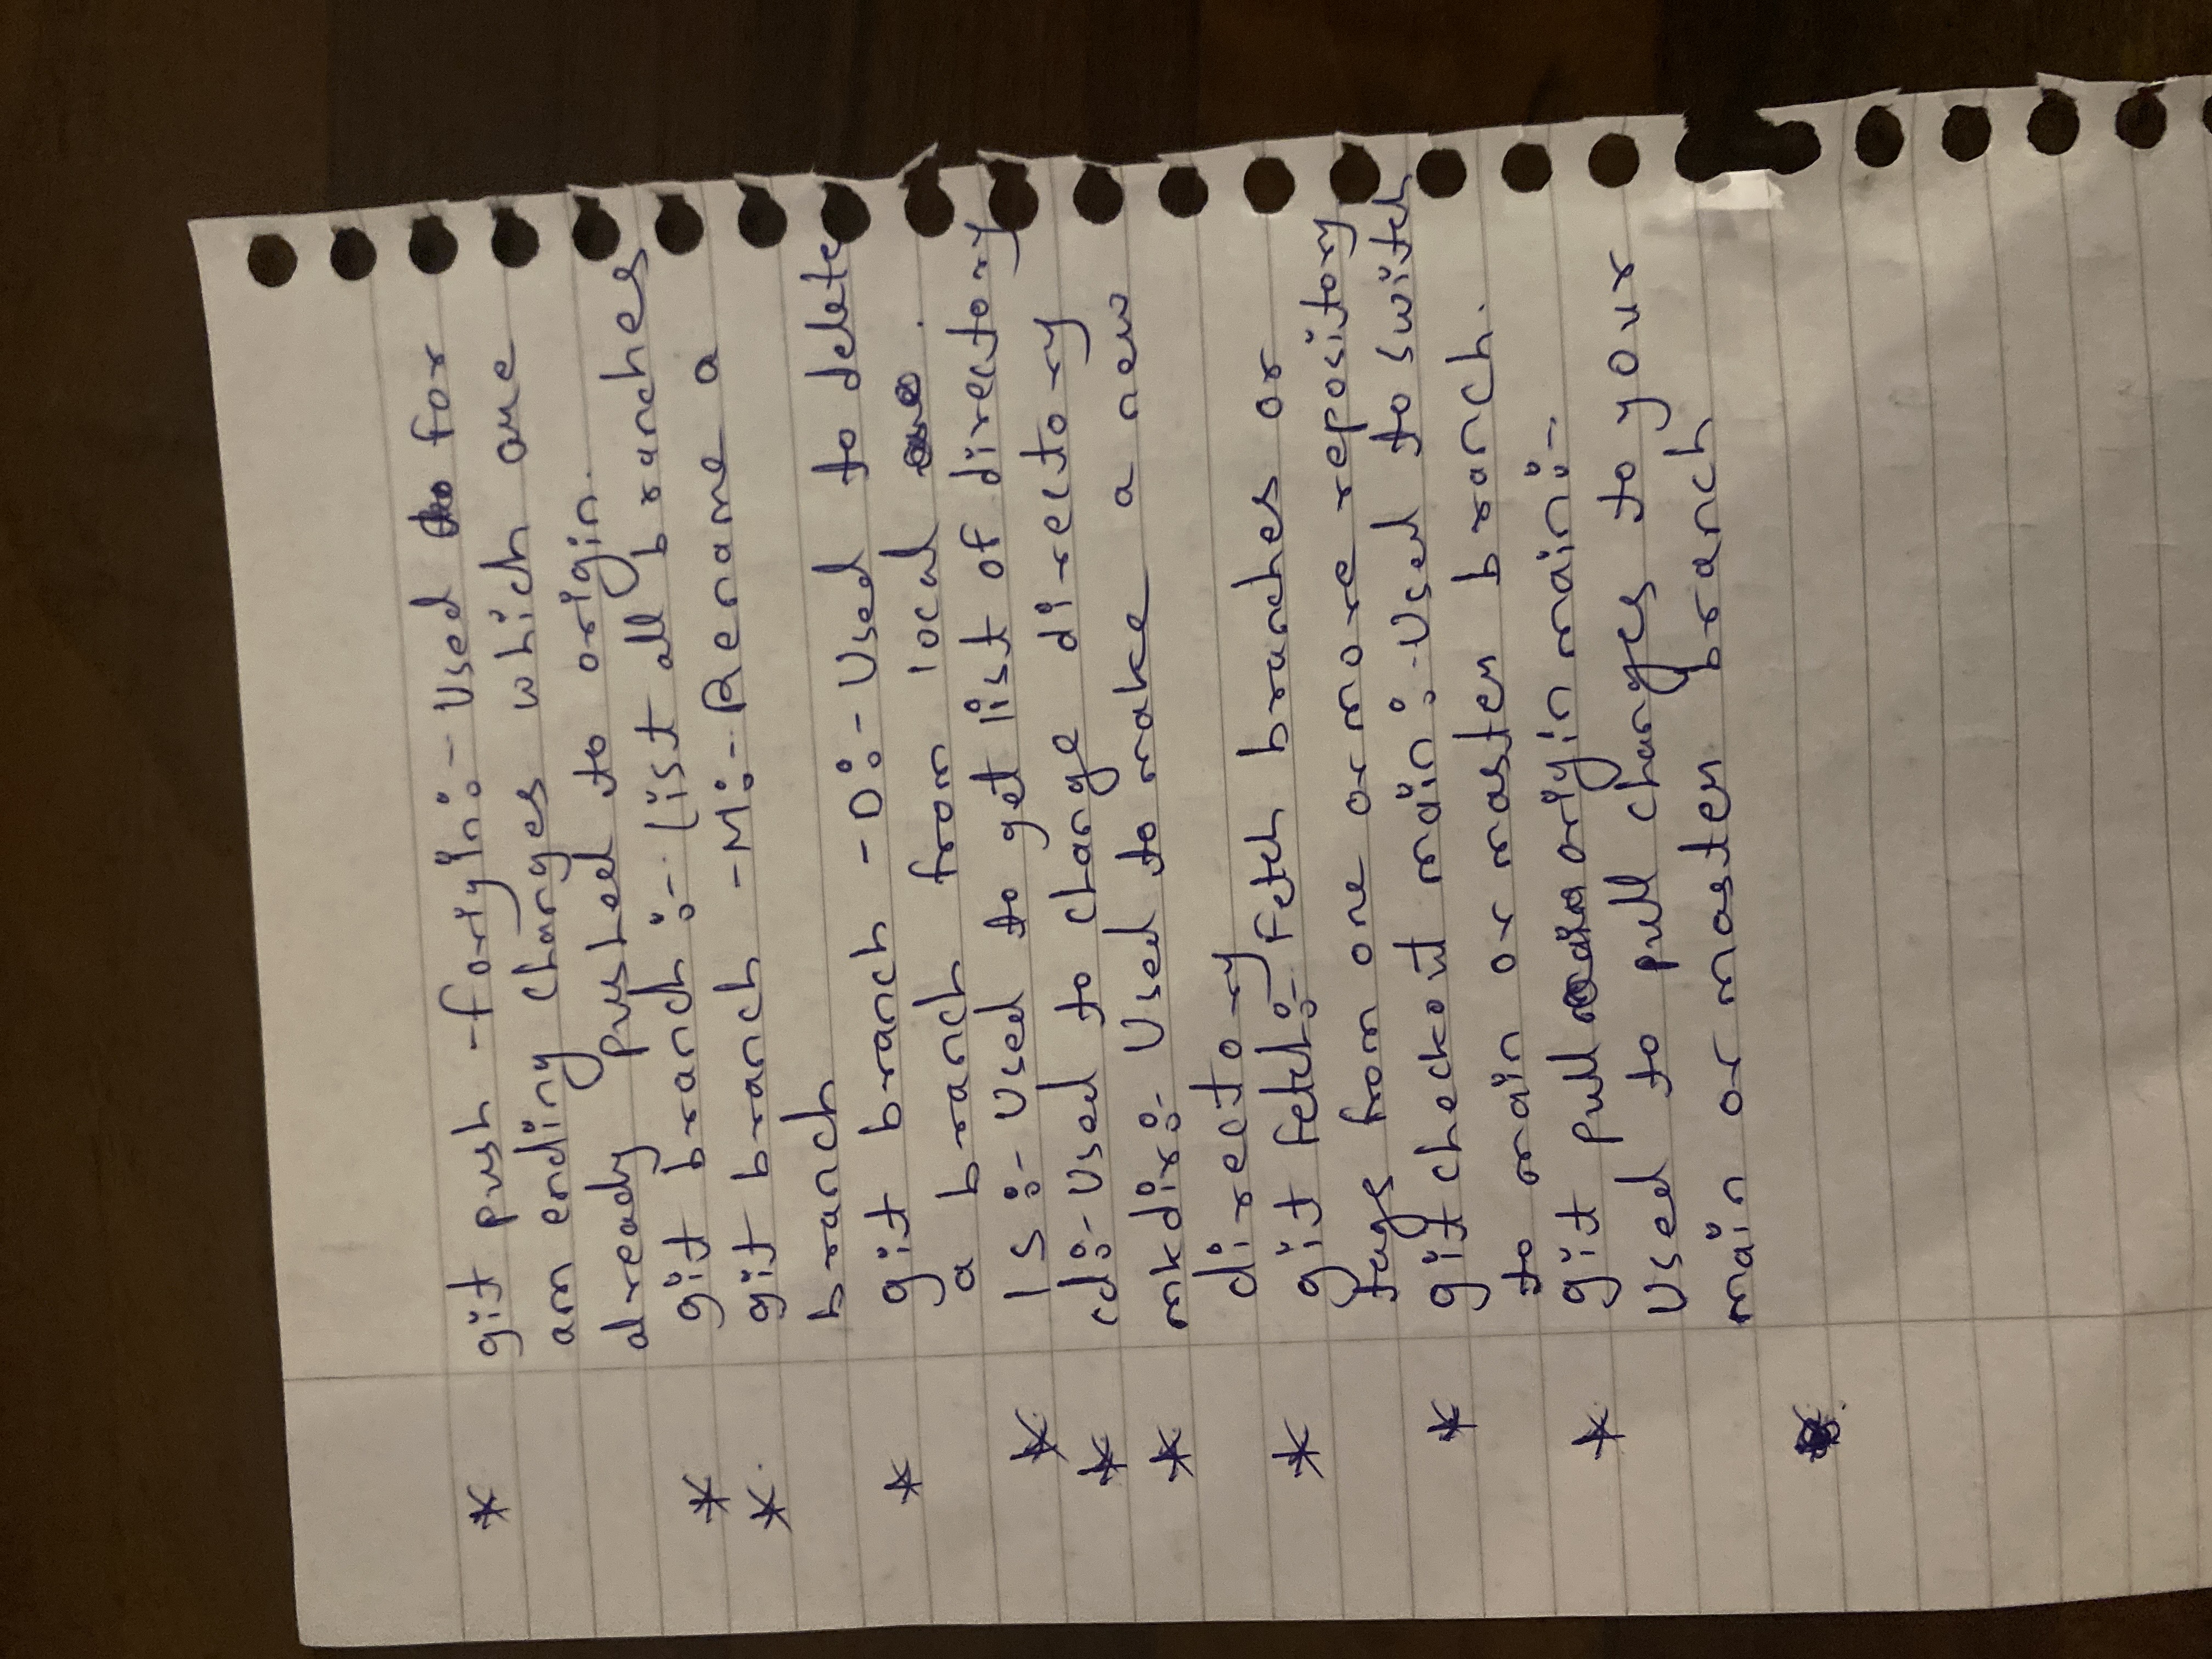 * git push -f origin:- Used for
am ending changes which are
already pushed to origin.
* git branch :- list all branches
* git branch -M:- Rename a
branch
* git branch -D:- Used to delete
a branch from local .
* ls:- Used to get list of directory
* cd:- Used to change directory
* mkdir:- Used to make a new
directory
* git fetch:- Fetch branches or
tags from one or more repository
* git checkout main:- Used to switch
to main or master branch.
* git pull origin main:-
Used to pull changes to your
main or master branch